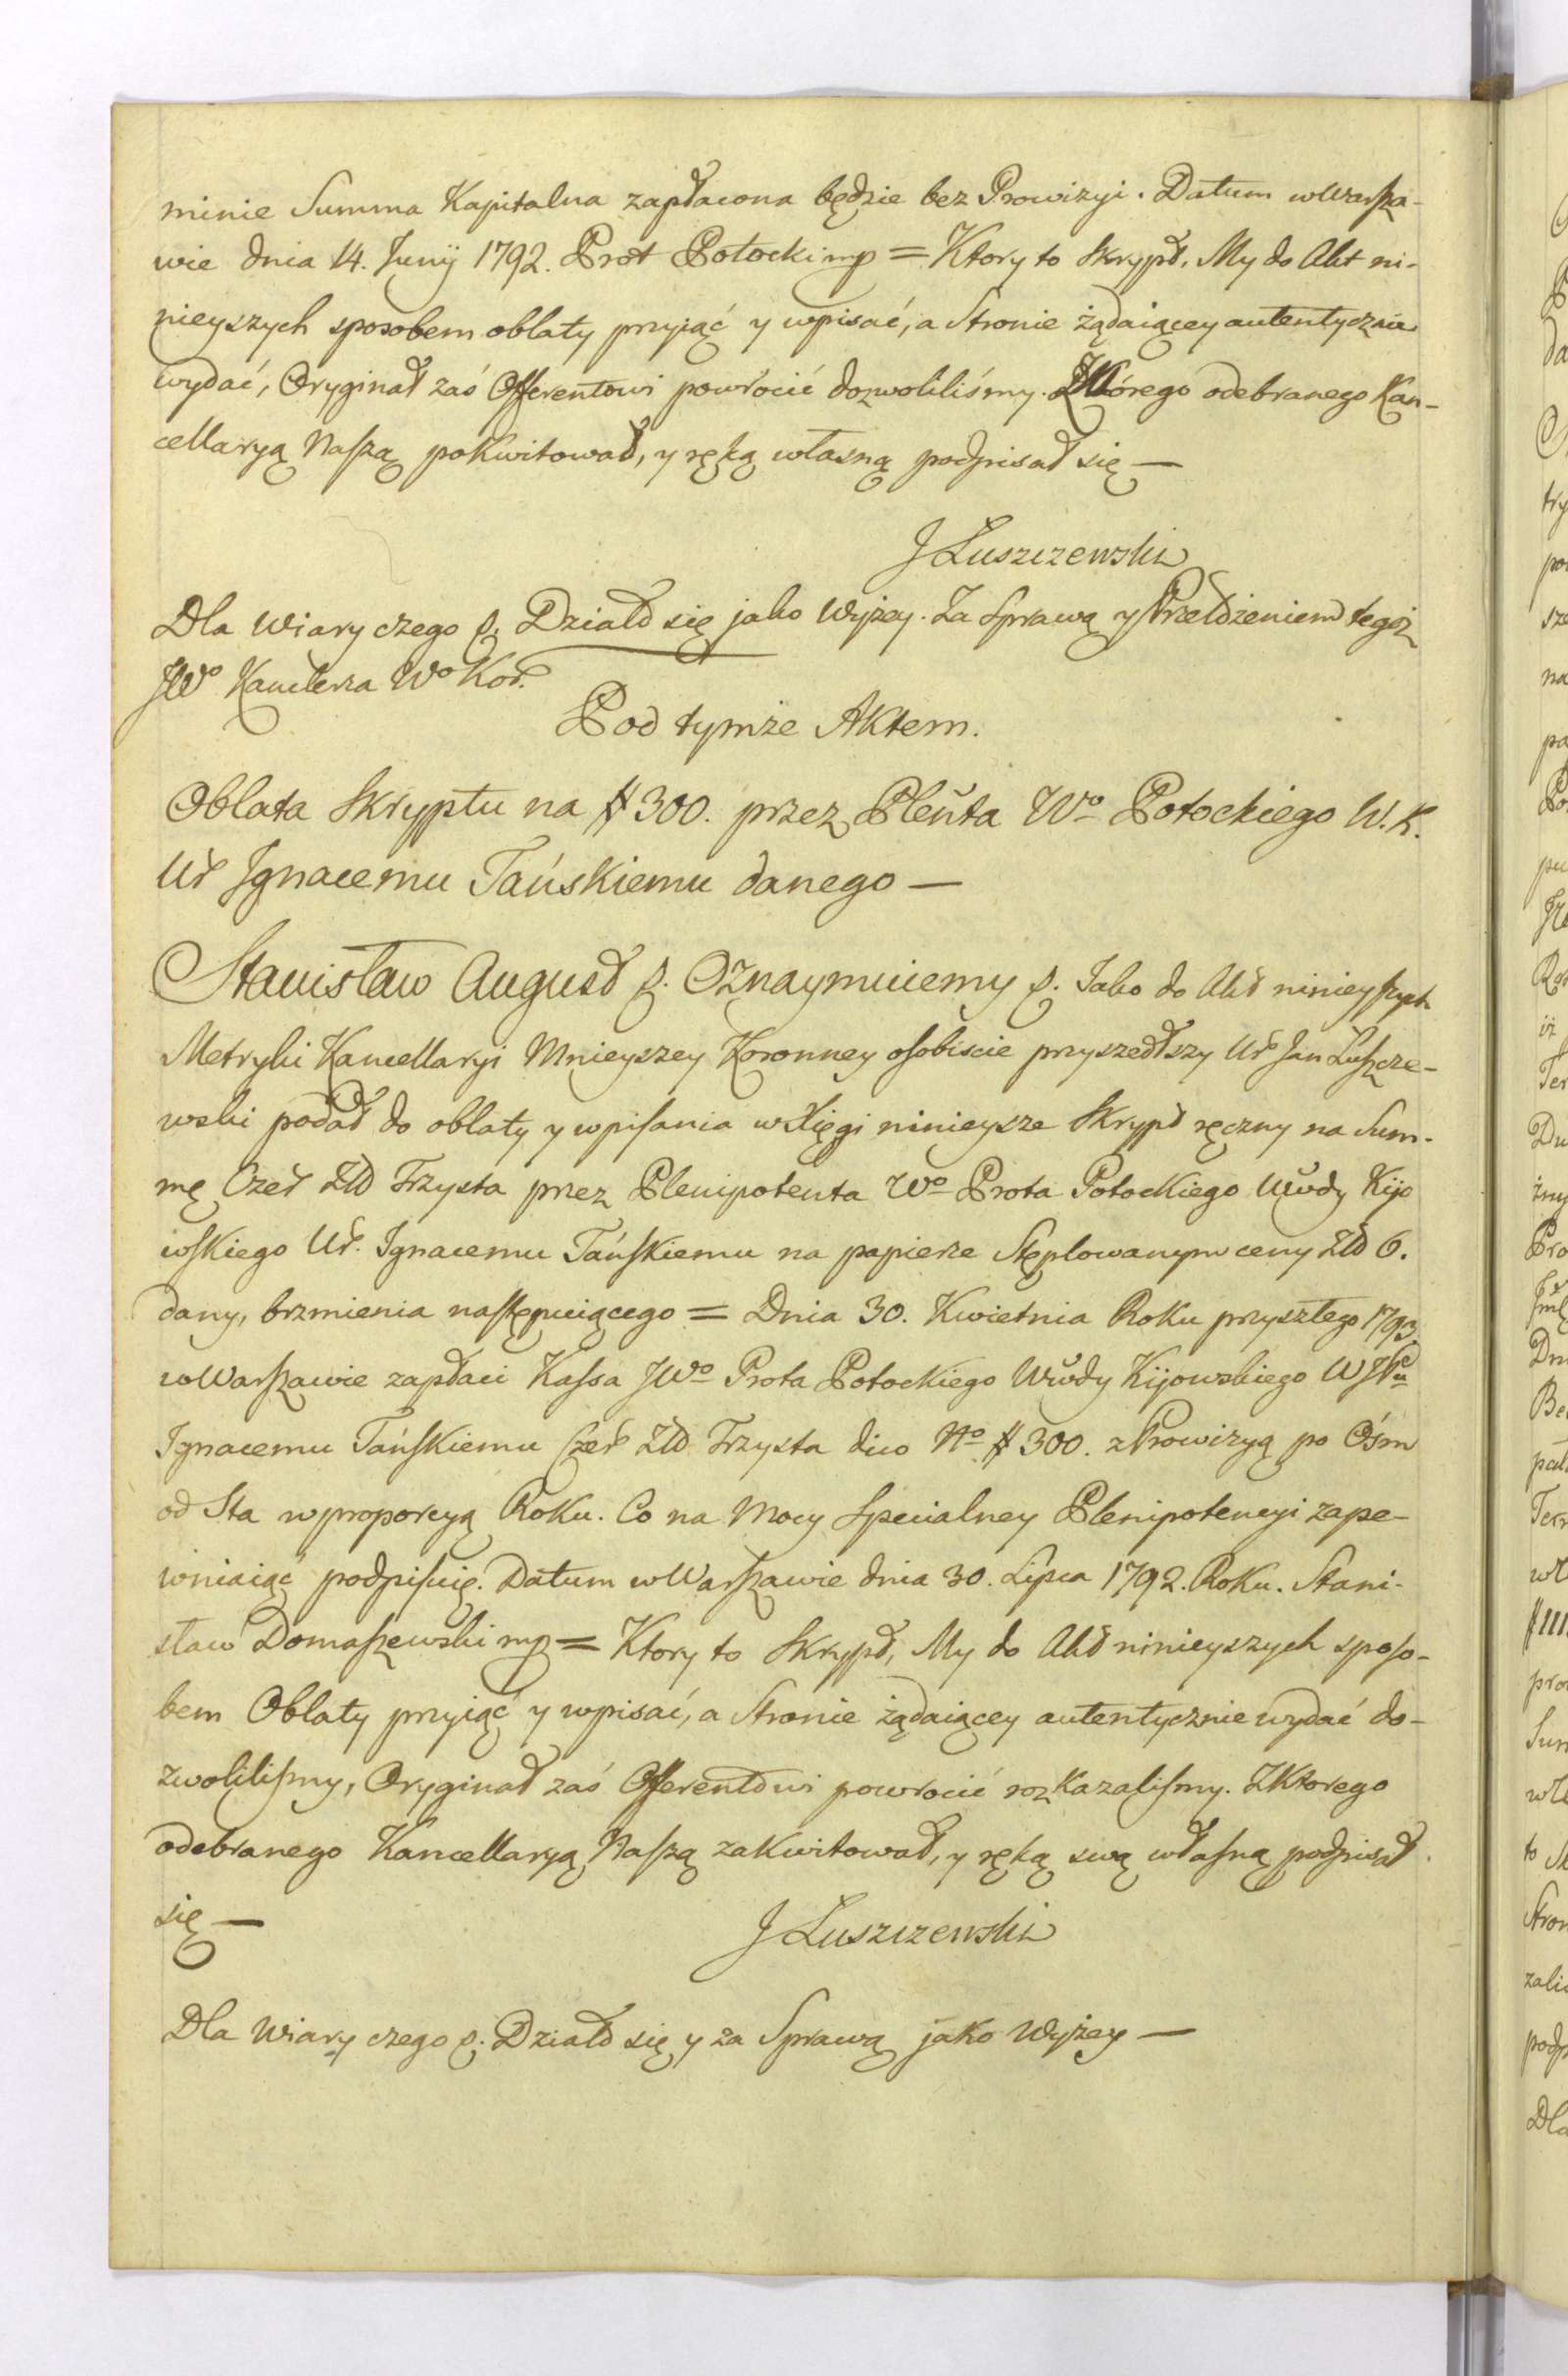 minie Summa Kapitalna zapłacona będzie bez Prowizyi. Datum w Warsza-
wie dnia 14. Junij 1792. Prot Potocki mp = Ktory to Skrypt, My do Akt ni-
nieyszych sposobem oblaty przyiąć y wpisać, a Stronie żądaiącey autentycznie
wydać, Oryginał zaś Offerentowi powrocić dozwoliliśmy. Z Którego odebranego Kan-
cellaryą Naszą pokwitował, y ręką własną podpisał się —
J Łuszczewski
Dla Wiary czego p. Działo się jako Wyżey. Za Sprawą y Przełożeniem tegoż
JWo Kanclerza Wo Kor.
Pod tymże Aktem.
Oblata Skryptu na # 300. przez Pleńta Wo Potockiego W. K.
Ur Ignacemu Tańskiemu danego —
Stanisław August p. Oznaymuiemy p. Jako do Akt ninieyszych
Metryki Kancellaryi Mnieyszey Koronney osobiscie przyszedłszy Ur Jan Łuszcze-
wski podał do oblaty y wpisania w Xięgi ninieysze Skrypt ręczny na Sum-
mę Czer Złł Trzysta przez Plenipotenta Wo Prota Potockiego Wwdy Kijo
wskiego Ur. Ignacemu Tańskiemu na papierze Stęplowanym ceny Złł 6.
dany, brzmienia następuiącego = Dnia 30. Kwietnia Roku przyszłego 1793.
w Warszawie zapłaci Kassa JWo Prota Potockiego Wwdy Kijowskiego WJPu
Ignacemu Tańskiemu Czer Złł Trzysta dico No # 300. z Prowizyą po Ośm
od Sta w proporcyą Roku. Co na Mocy Specialney Plenipotencyi zape-
wniaiąc podpisuię. Datum w Warszawie dnia 30. Lipca 1792. Roku. Stani-
sław Domaszewski mp = Ktory to Skrypt, My do Akt ninieyszych sposo-
bem Oblaty przyiąć y wpisać, a Stronie żądaiącey autentycznie wydać do-
zwolilismy, Oryginał zaś Offerentowi powrocić rozkazalismy. Z Ktorego
odebranego Kancellaryą Naszą zakwitował, y ręką swą własną podpisał
się —
J Łuszczewski
Dla Wiary czego p. Działo się y za Sprawą jako Wyżey —